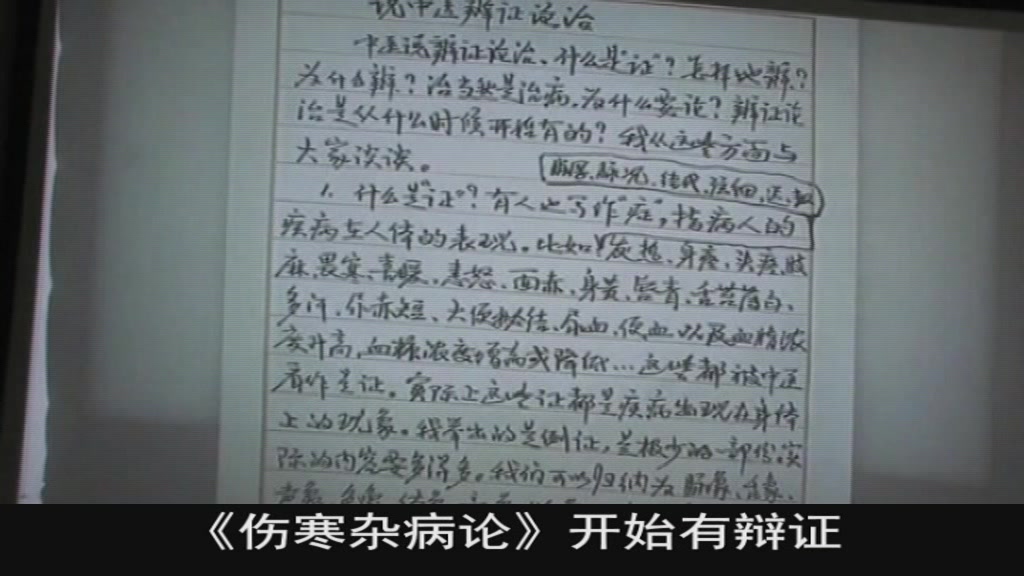 说中医辨证论治
中医说辨证论治、什么是“证”？怎样地辨？
为什么辨？治当然是治病，为什么要论？辨证论
治是从什么时候开始有的？我从这些方面与
大家谈谈。
脉浮、脉沉、结代、弦细、迟、数
1、什么是“证”？有人也写作“症”，指病人的
疾病在人体的表现。比如发热、身疼、头疼、肢
麻、畏寒、喜暖、恚怒、面赤、身黄、唇青、舌苔薄白、
多汗、仆赤短、大便秘结、尿血、便血、以及血脂浓
度升高，血糖浓度增高或降低…这些都被中医
看作是证。实际上这些证都是疾病出现在身体
上的现象。我举出的是例证，是极少的一部份。实
际的内容要多得多。我们可以归纳为脉象、舌象、
《伤寒杂病论》开始有辩证